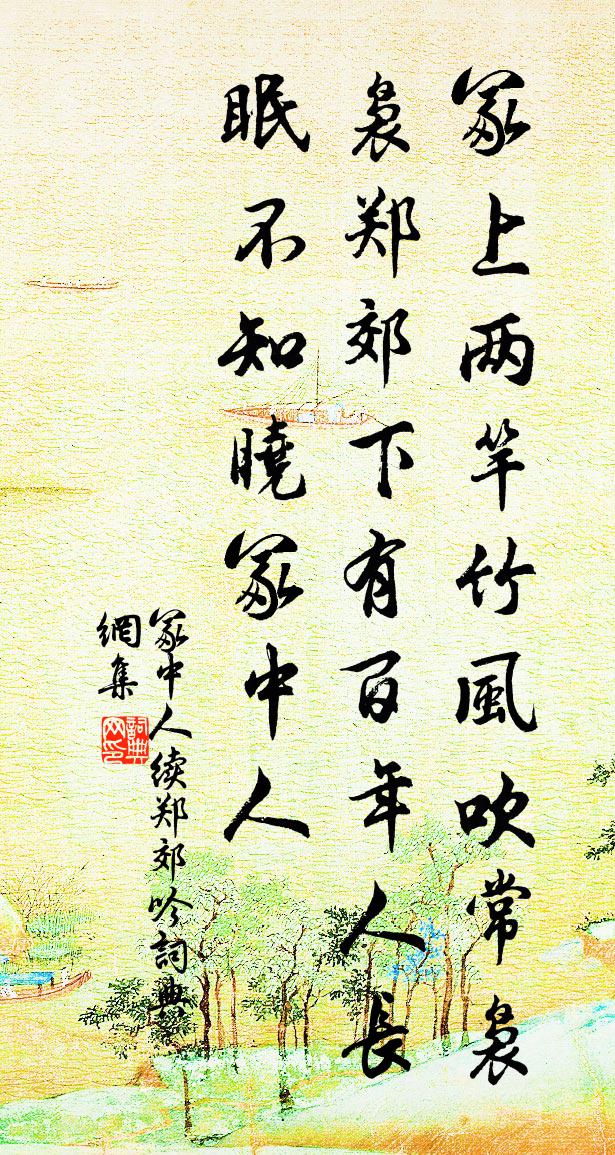 冢上两竿竹風吹常袅
袅郑郊下有百年人長
眠不知曉冢中人
冢中人续郑郊吟詞典
網集
詞典
网印